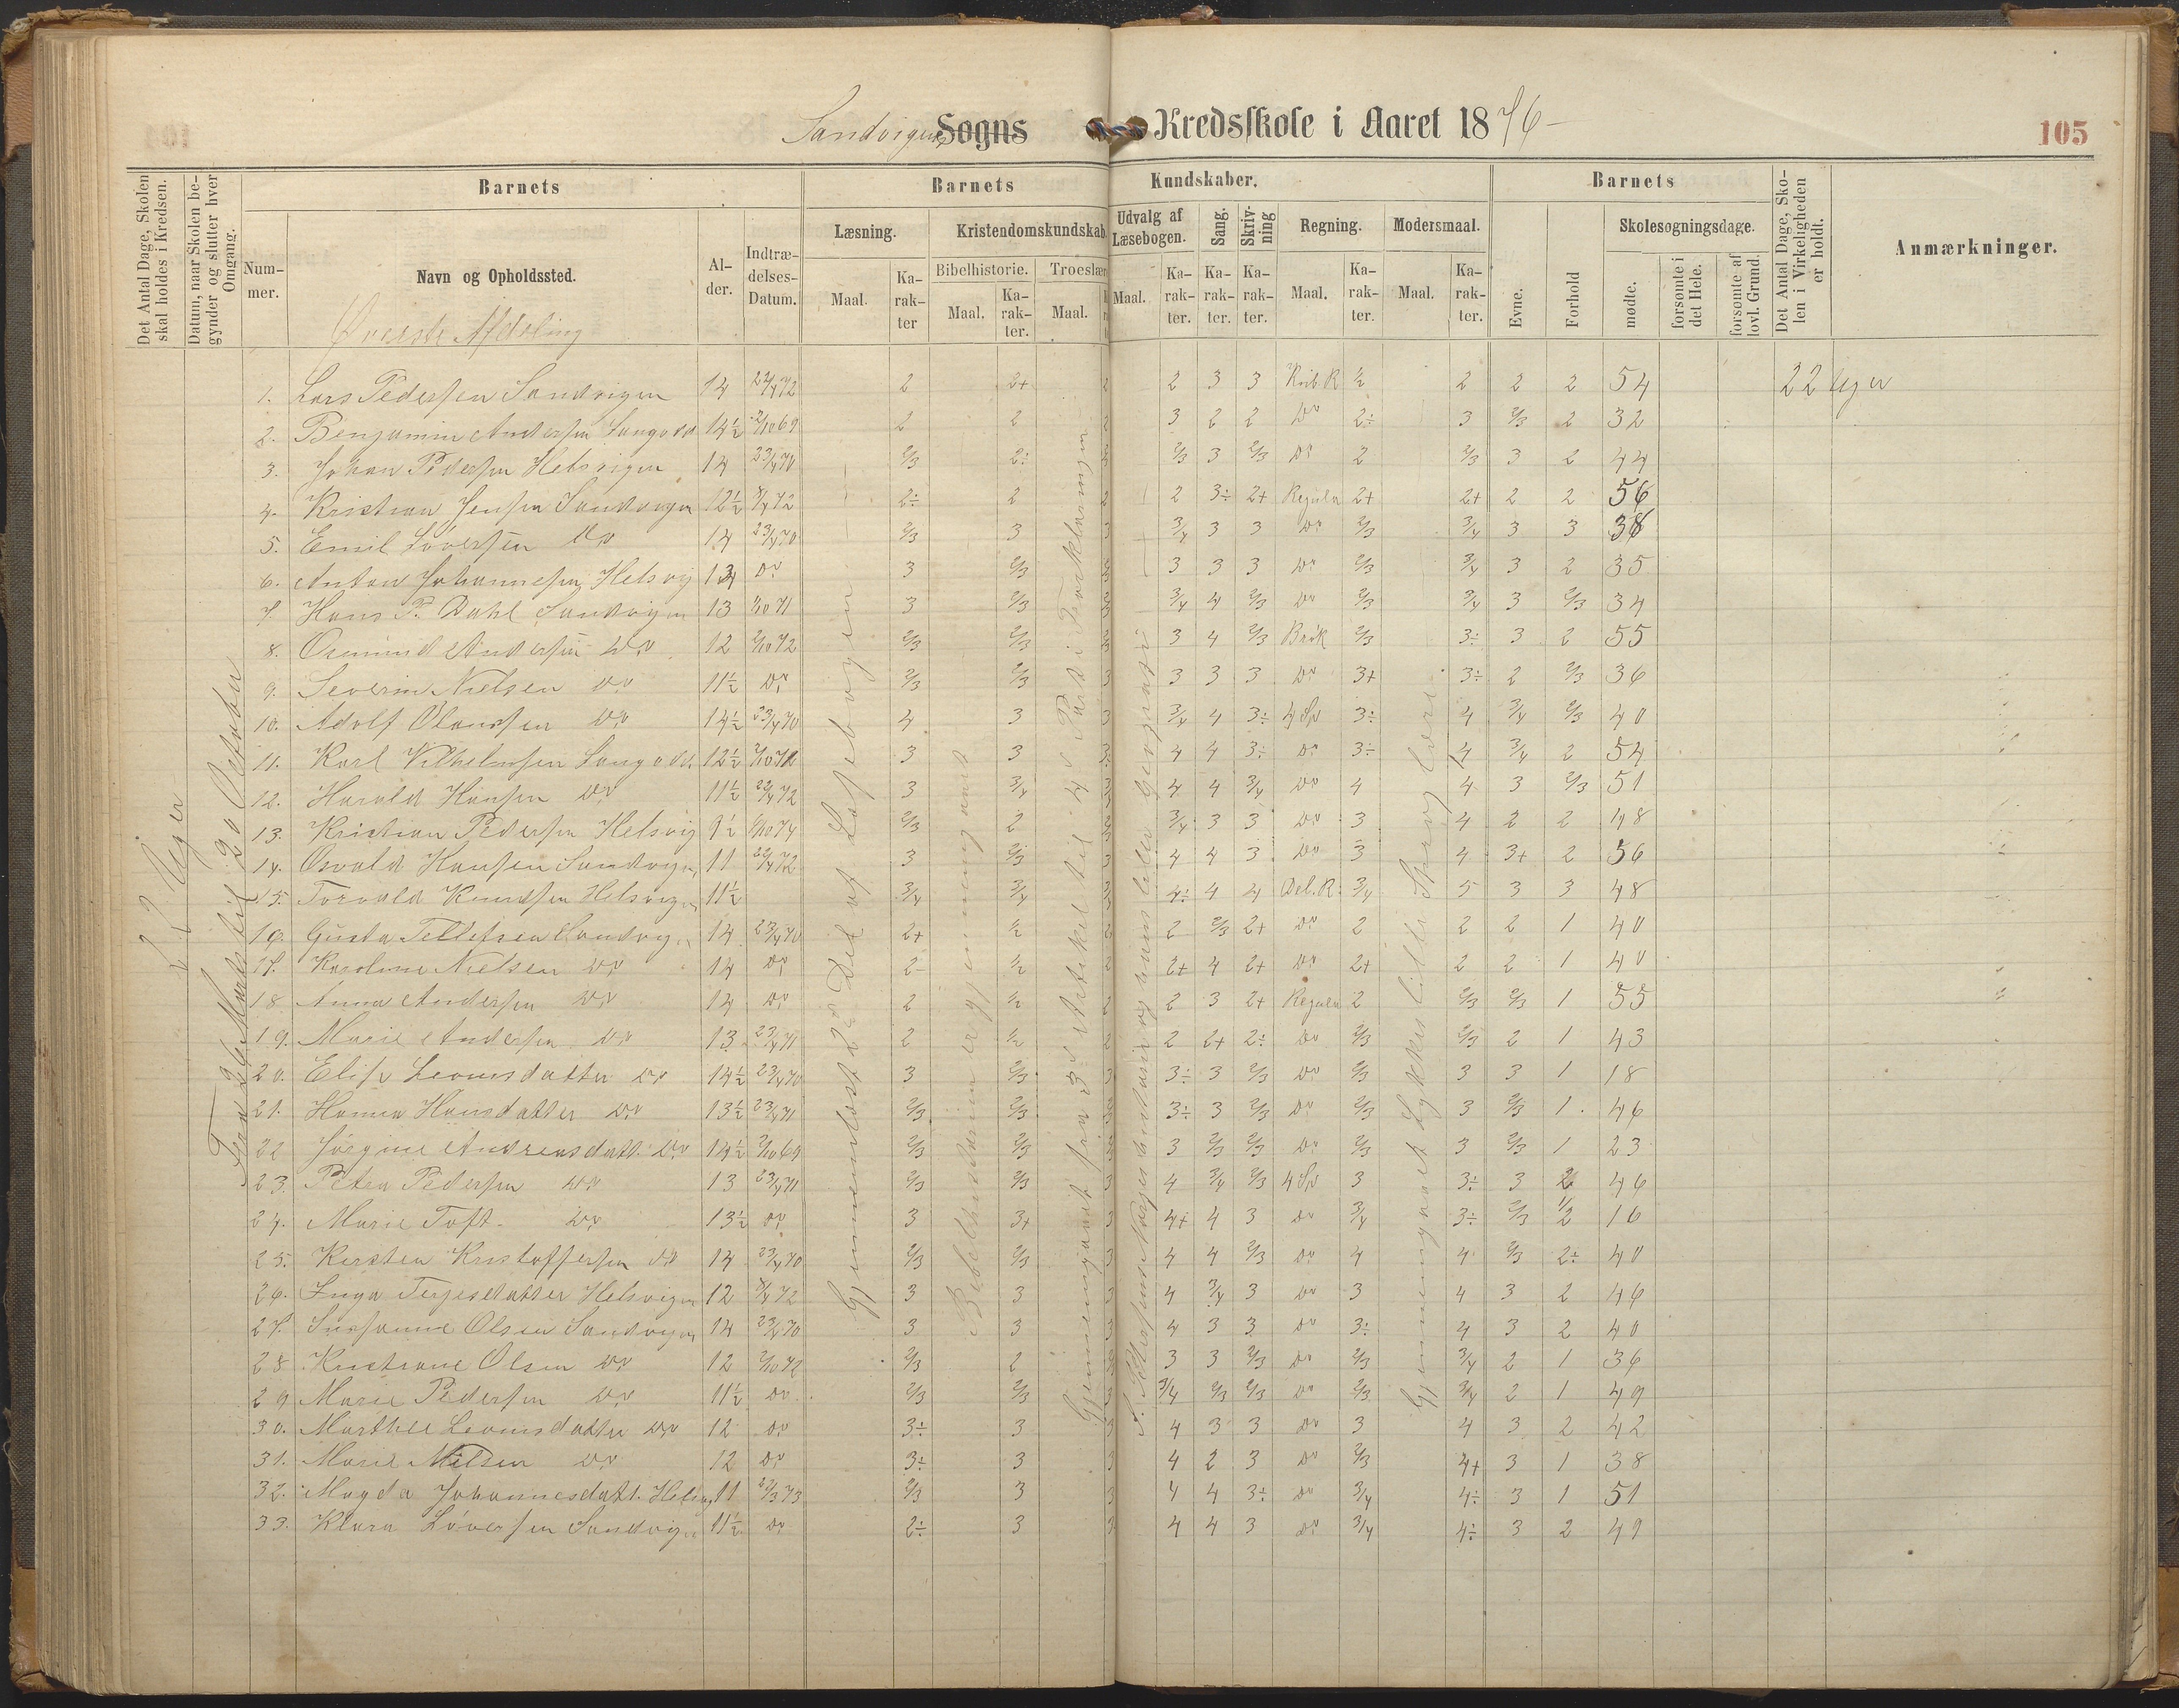 Sandvigens Sogns Kredsskole i Aaret 1876
105
Det Antal Dage, Skolen skal holdes i Kredsen.
Datum, naar Skolen begynder og slutter hver Omgang.
Barnets
Barnets Kundskaber.
Barnets
Det Antal Dage, Skolen i Virkeligheden er holdt.
Anmærkninger.
Nummer.
Navn og Opholdssted.
Alder.
Indtrædelses-Datum.
Læsning.
Kristendomskundskab
Udvalg af Læsebogen.
Sang.
Skrivning
Regning.
Modersmaal.
Evne.
Forhold
Skolesøgningsdage.
Bibelhistorie.
Troeslære
Maal.
Karakter
Maal.
Karakter.
Maal.
Maal.
Karakter.
Karakter.
Karakter.
Maal.
Karakter.
Maal.
Karakter.
mødte.
forsømte i det Hele.
forsømte af lovl. Grund.
Øverste Afdeling
22 Uger
Fra 26 Marts til 20 Oktober
1. Lars Pedersen Sandvigen 14 24/4 72 2 2+ 2 2 3 3 ½ 2 2 2 54 22 Uger
2. Benjamin Andersen Langodd 14½ 2/10 69 2 2 2 3 2 2 Do 2÷ 3 2/3 2 32
3. Johan Pedersen Helsvigen 14 23/4 70 2/3 2÷ 2/3 3 2/3 Do 2 2/3 3 2 44
4. Kristian Jensen Sandvigen 12½ 8/4 72 2÷ 2 2 2 3÷ 2+ Regula 2+ 2+ 2 2 56
5. Emil Løversen Do 14 23/4 70 2/3 3 3 3/4 3 3 Do 2/3 3/4 3 3 38
6. Anton Johannesen Helsvig 13 Do 3 2/3 3 3 3 Do 2/3 3/4 3 2 35
7. Hans P. Dahl Sandvigen 13 1/10 71 3 2/3 3/4 4 2/3 Do 2/3 3/4 3 2/3 34
8. Osmund Andersen Do 12 2/10 72 2/3 2/3 3 4 2/3 Brøk 2/3 3÷ 3 2 55
9. Severin Nielsen Do 11½ Do 2/3 2/3 3 3 3 3 Do 3+ 3÷ 2 2/3 36
10. Adolf Olaussen Do 14½ 23/4 70 4 3 3 3/4 4 3÷ 4 Sp 3÷ 4 3/4 2/3 40
11. Karl Vilhelmsen Langodd. 12½ 3 3 3 4 4 3÷ Do 3÷ 4 3/4 2 54
12. Harald Hansen Do 11½ 22/4 72 3 3/4 4 4 3/4 Do 4 4 3 2/3 51
13. Kristian Pedersen Helsvig 9½ 6/10 74 2/3 2 3/4 3 3 Do 3 4 2 2 48
14. Osvald Hansen Sandvigen 11 22/4 72 3 2/3 3 4 4 3 Do 3 4 3+ 2 56
15. Torvald Knudsen Helsvigen 11½ 3/4 3/4 4÷ 4 4 Del. R. 3/4 5 3 3 48
16. Gusta Tellefsen Sandvigen 14 23/4 70 2+ ½ 2 2 2/3 2+ Do 2 2 2 1 40
17. Karoline Nielsen Do 14 Do 2- ½ 2 2+ 4 2+ Do 2+ 2 2 1 40
18. Anna Andersen Do 14 Do 2 ½ 2 2 3 2+ Regula 2 2/3 2/3 1 55
19. Marie Andersen Do 13 23/4 71 2 ½ 2 2 2+ 2÷ Do 2/3 2/3 2 1 43
20. Elise Leonisdatter Do 14½ 23/4 70 3 2/3 3 3÷ 3 2/3 Do 2/3 3 3 1 18
21. Hanna Hansdatter Do 13½ 23/4 71 2/3 2/3 3÷ 3 2/3 Do 2/3 3 2/3 1 46
22 Jørgine Andreasdatt. Do 14½ 2/10 69 2/3 2/3 3 2/3 2/3 Do 2/3 3 2/3 1 23
23. Petra Pedersen Do 13 23/4 71 2/3 2/3 3 4 3/4 2/3 4 Sp 3 3÷ 3 2 46
24. Marie Toft. Do 13½ Do 3 3+ 3 4+ 4 3 Do 3/4 3÷ 2/3 ½ 16
25. Kirsten Kristoffersen Do 14 23/4 70 2/3 2/3 3 4 4 2/3 Do 4 4 2/3 2÷ 40
26. Inga Terjesdatter Helsvigen 12 8/4 72 3 3 3 4 3/4 3 Do 3 4 3 2 46
27. Susanne Olsen Sandvigen 14 23/4 70 3 3 3 4 3 3 Do 3÷ 4 3 2 40
28. Kristiane Olsen Do 12 2/10 72 2/3 2 3 3 2/3 Do 2/3 3/4 2 1 36
29 Marie Pedersen Do 11½ Do 2/3 2/3 3/4 2/3 2/3 Do 2/3 3/4 2 1 49
30. Marthe Leonisdatter Do 12 Do 3÷ 3 3 4 3 3 Do 3 4 3 2 42
31. Marie Nilsen Do 12 Do 3÷ 3 3 4 2 3 Do 2/3 4+ 3 1 38
32. Magda Johannesdatt. Helsvig 11 23/3 73 2/3 3 3 4 4 3÷ Do 3/4 4÷ 3 1 51
33. Klara Løversen Sandvigen 11½ Do 2÷ 3 3 4 4 3 Do 3/4 4÷ 3 2 49
Gjennemlæst 2den Del af Læsebogen
Bibelhistorien er gjennemgaaet
Gjennemgaaet fra 3die Artikel til 4de Part i Forklaringen
Gjennemgaaet Løkkes lille Sproglære